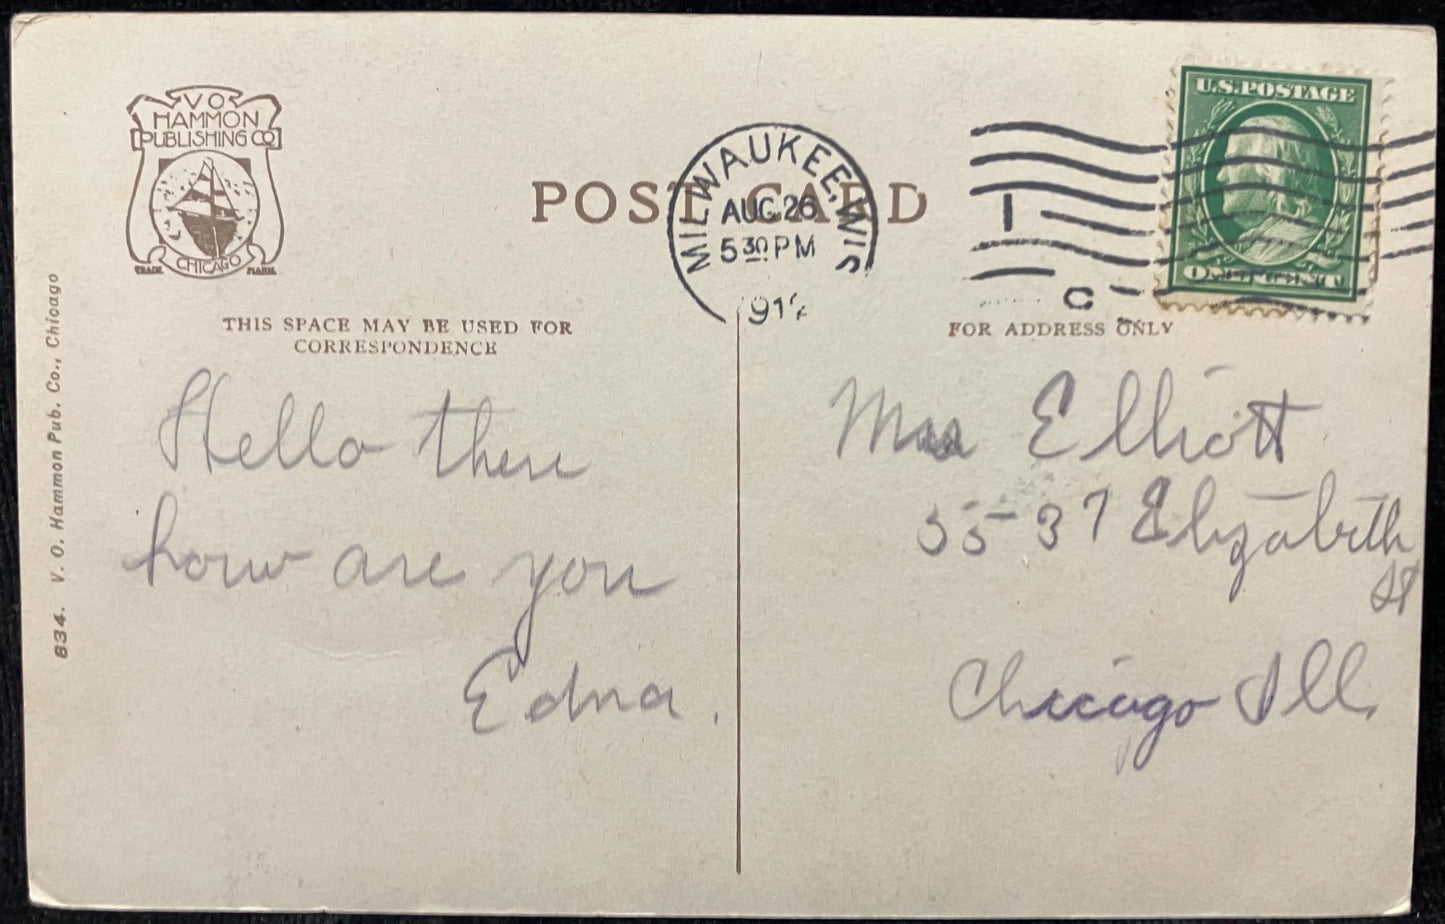 V O
HAMMON
PUBLISHING CO
CHICAGO
TRADE MARK
POST CARD
MILWAUKEE, WIS
AUG 26
5 30 PM
191
U.S. POSTAGE
ONE CENT
C
THIS SPACE MAY BE USED FOR
CORRESPONDENCE
FOR ADDRESS ONLY
834. V. O. Hammon Pub. Co., Chicago
Hello there
how are you
Edna.
Elliott
55-37 Elizabeth
St
Chicago Ill.